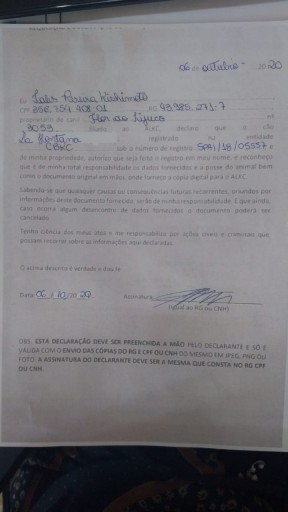 06 de outubro de 2020
Eu
CPF 358.754.408-01 RG 43.985.271-7
proprietário do canil Flor do Lipico nº
3053 filiado ao ALKC declaro que o cão
La Montana registrado na entidade
CBKC sob o número de registro SPAI/18/05557 é
de minha propriedade, autorizo que seja feito o registro em meu nome, e reconheço
que é de minha total responsabilidade os dados fornecidos e a posse do animal bem
como o documento original em mãos, onde forneço a cópia digital para o ALKC.
Sabendo-se que quaisquer causas ou consequências futuras recorrentes, providos por
informações deste documento fornecido, serão de minha responsabilidade. E que ainda,
caso ocorra algum desencontro de dados fornecidos o documento poderá ser
cancelado.
Tenho ciência dos meus atos e me responsabilizo por ações cíveis e criminais que
possam recorrer sobre as informações aqui declaradas.
O acima descrito é verdade e dou fé
Data: 06 / 10 / 2020 Assinatura
(igual do RG ou CNH)
OBS: ESTA DECLARAÇÃO DEVE SER PREENCHIDA A MÃO PELO DECLARANTE E SÓ É
VÁLIDA COM O ENVIO DAS CÓPIAS DO RG E CPF OU CNH DO MESMO EM JPEG, PNG OU
FOTO. A ASSINATURA DO DECLARANTE DEVE SER A MESMA QUE CONSTA NO RG CPF
OU CNH.